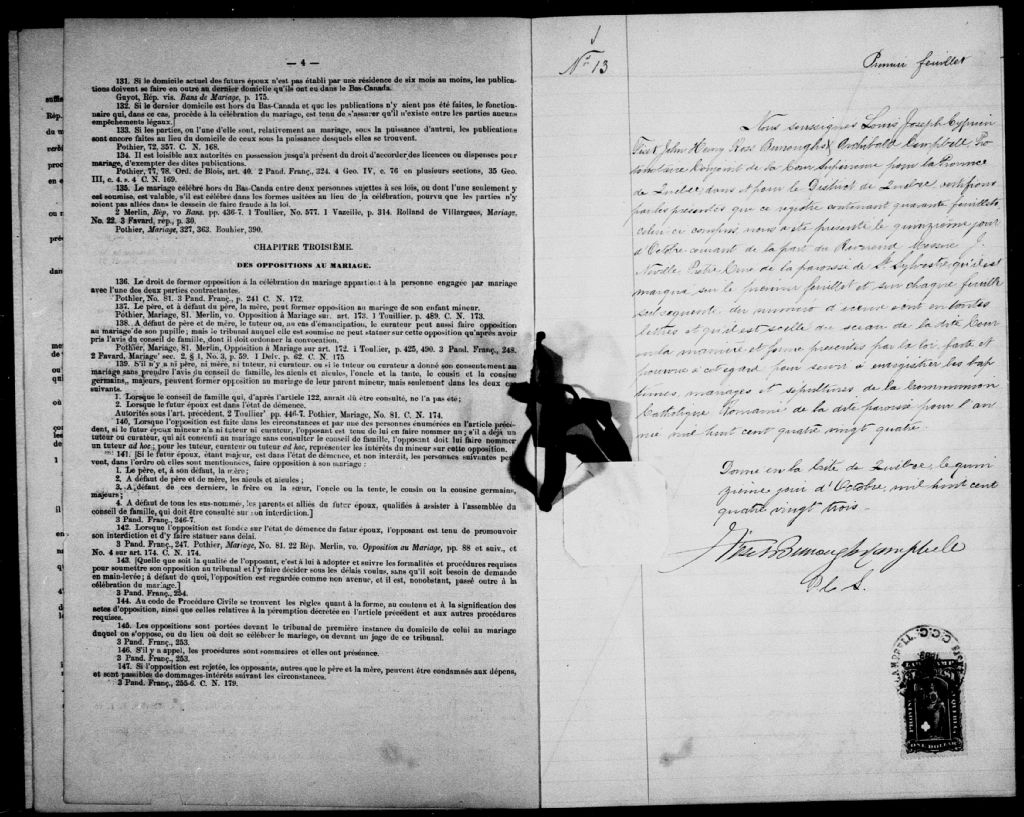 — 4 —
131. Si le domicile actuel des futurs époux n'est pas établi par une résidence de six mois au moins, les publica-
tions doivent se faire en outre au dernier domicile qu'ils ont eu dans le Bas-Canada.
Guyot, Rép. vis. Bans de Mariage, p. 175.
132. Si le dernier domicile est hors du Bas-Canada et que les publications n'y aient pas été faites, le fonction-
naire qui, dans ce cas, procède à la célébration du mariage, est tenu de s'assurer qu'il n'existe entre les parties aucuns
empêchements légaux.]
133. Si les parties, ou l'une d'elle sont, relativement au mariage, sous la puissance d'autrui, les publications
sont encore faites au lieu du domicile de ceux sous la puissance desquels elles se trouvent.
Pothier, 72, 357. C. N. 168.
134. Il est loisible aux autorités en possession jusqu'à présent du droit d'accorder des licences ou dispenses pour
mariage, d'exempter des dites publications.
Pothier, 77, 78. Ord. de Blois, art. 40. 2 Pand. Franç., 324. 4 Geo. IV, c. 76 en plusieurs sections, 35 Geo.
III, c. 4. s. 4 C. N. 169.
135. Le mariage célébré hors du Bas-Canda entre deux personnes sujettes à ses lois, ou dont l'une seulement y
est soumise, est valable, s'il est célébré dans les formes usitées au lieu de la célébration, pourvu que les parties n'y
soient pas allées dans le dessein de faire fraude à la loi.
2 Merlin, Rép, vo Bans. pp. 436-7. 1 Toullier, No. 577. 1 Vazeille, p. 314. Rolland de Villargues, Mariage,
No. 22. 3 Favard, rép., p. 30.
Pothier, Mariage, 327, 363. Bouhier, 390.
CHAPITRE TROISIÈME.
DES OPPOSITIONS AU MARIAGE.
136. Le droit de former opposition à la célébration du mariage appartient à la personne engagée par mariage
avec l'une des deux parties contractantes.
Pothier, No. 81. 3 Pand. Franç., p. 241 C. N. 172.
137. Le père, et à défaut du père, la mère, peut former opposition au mariage de son enfant mineur.
Pothier, Mariage, 81. Merlin, vo. Opposition à Mariage sur. art. 173. 1 Touillier, p. 489. C. N. 173.
138. A défaut de père et de mère, le tuteur ou, au cas d'émancipation, le curateur peut aussi faire opposition
au mariage de son pupille; mais le tribunal auquel elle est soumise ne peut statuer sur cette opposition qu'après avoir
pris l'avis du conseil de famille, dont il doit ordonner la convocation.
Pothier, Mariage, 81. Merlin, Opposition à Mariage sur art. 172. 1 Toullier, p. 425, 490. 3 Pand. Franç., 248.
2 Favard, Mariage sec. 2, § 1, No. 3, p. 59. 1 Delv. p. 62. C. N. 175
139. S'il n'y a ni père, ni mère, ni tuteur, ni curateur, ou si le tuteur ou curateur a donné son consentement au
mariage sans prendre l'avis du conseil de famille, les aieuls et aieules, l'oncle et la tante, le cousin et la cousine
germains, majeurs, peuvent former opposition au mariage de leur parent mineur, mais seulement dans les deux cas
suivants.
1. Lorsque le conseil de famille qui, d'après l'article 122, aurait dû être consulté, ne l'a pas été;
2. Lorsque le futur époux est dans l'état de démence.
Autorités sous l'art. précédent, 2 Toullier' pp. 446-7. Pothier, Mariage, No. 81. C. N. 174.
140. Lorsque l'opposition est faite dans les circonstances et par une des personnes énumérées en l'article précé-
dent, si le futur époux mineur n'a ni tuteur ni curateur, l'opposant est tenu de lui en faire nommer un; s'il a déjà un
tuteur ou curateur, qui ait consenti au mariage sans consulter le conseil de famille, l'opposant doit lui faire nommer
un tuteur ad hoc; pour les tuteur, curateur ou tuteur ad hoc, représenter les intérêts du mineur sur cette opposition.
141. [Si le futur époux, étant majeur, est dans l'état de démence, et non interdit, les personnes suivantes peu-
vent, dans l'ordre où elles sont mentionnées, faire opposition à son mariage:
1. Le père, et, à son défaut, la mère;
2. A défaut de père et de mère, les aieuls et aieules;
3. A défaut de ces derniers, le frère ou la sœur, l'oncle ou la tente, le cousin ou la cousine germains,
majeurs;
4. A défaut de tous les sus-nommés, les parents et alliés du futur époux, qualifiés à assister à l'assemblée du
conseil de famille, qui doit être consulté sur son interdiction.]
3 Pand. Franç., 246-7.
142. Lorsque l'opposition est fondée sur l'état de démence du futur époux, l'opposant est tenu de promouvoir
son interdiction et d'y faire statuer sans délai.
3 Pand. Franç., 247. Pothier, Mariage, No. 81. 22 Rép. Merlin, vo. Opposition au Mariage, pp. 88 et suiv., et
No. 4 sur art. 174. C. N. 174.
143. [Quelle que soit la qualité de l'opposant, c'est à lui à adopter et suivre les formalités et procédures requises
pour soumettre son opposition au tribunal et l'y faire décider sous les délais voulus, sans qu'il soit besoin de demande
en main-levée; à défaut de quoi, l'opposition est regardée comme non avenue, et il est, nonobstant, passé outre à la
célébration du mariage.]
3 Pand. Franç., 254.
144. Au code de Procédure Civile se trouvent les règles quant à la forme, au contenu et à la signification des
actes d'opposition, ainsi que celles relatives à la péremption décretée en l'article précédent et aux autres procédures
requises.
145. Les oppositions sont portées devant le tribunal de première instance du domicile de celui au mariage
duquel on s'oppose, ou du lieu où doit se célébrer le mariage, ou devant un juge de ce tribunal.
3 Pand. Franç., 253.
146. S'il y a appel, les procédures sont sommaires et elles ont préséance.
3 Pand. Franç., 253.
147. Si l'opposition est rejetée, les opposants, autres que le père et la mère, peuvent être condamnés aux dépens,
et sont passibles de dommages-intérêts suivant les circonstances.
3 Pand. Franç., 255-6. C. N. 179.
No 13
Premier feuillet
Nous soussignés Louis Joseph Cyprien
Fiset John Henry Ross Burroughs & Archibald Campbell, Pro
tonotaire Conjoint de la Cour Superieure pour la Province
de Quebec dans et pour le District de Quebec, certifions
par les presentes que ce registre contenant quarante feuillets
celui ci compris, nous a été presenté le quinzième jour
d'Octobre courant de la part du Reverend Messire J.
Neville Ptre Cure de la paroisse de St Sylvestre, qu'il est
marqué sur le premier feuillet et sur chaque feuillet
subsequent du numero d'iceux ecrit en toutes
lettres et qu'il est scellé du sceau de la dite Cour
en la manière et forme prescrites par la loi faite et
pourvue a cet egard pour servir à enregistrer les bap
temes, mariages et sepultures de la Communion
Catholique Romaine de la dite paroisse pour l'an
née mil huit cent quatre vingt quatre.
Donné en la Cité de Quebec, le quin
zième jour d'Octobre, mil huit cent
quatre vingt trois.
Fiset Burroughs Campbell
P. C. S.
CAMPBELL C.C.C.
LAW STAMP
QUEBEC
ONE DOLLAR